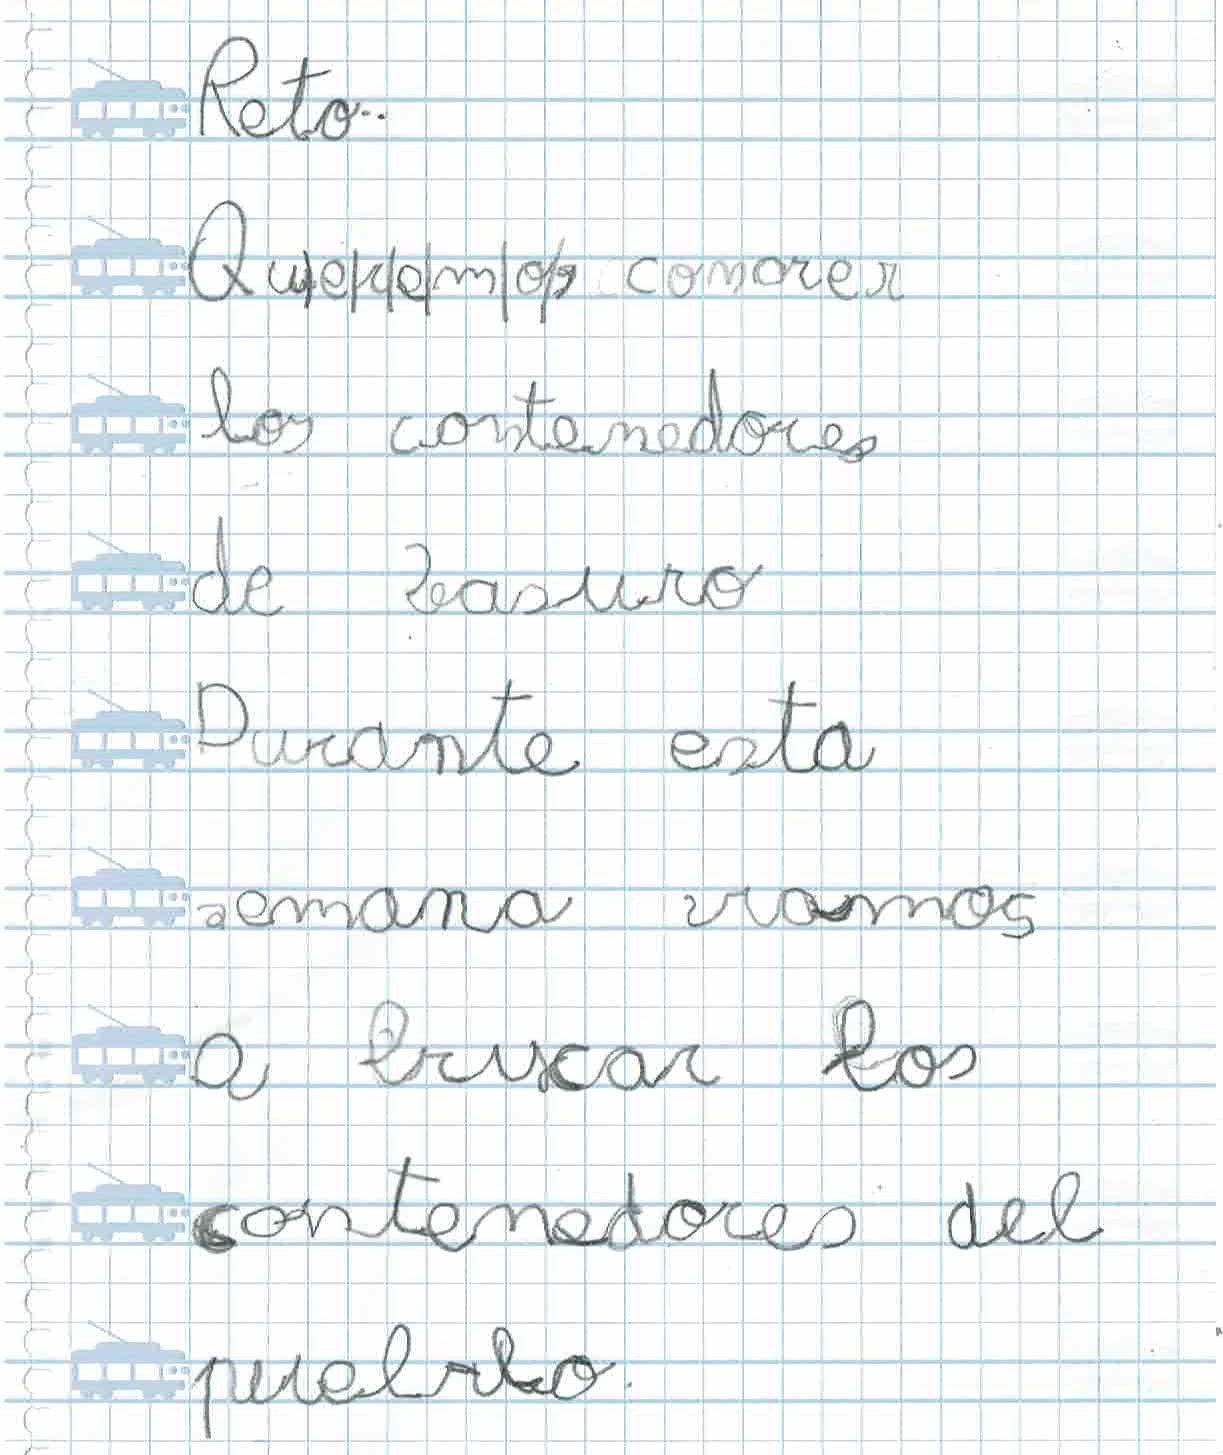 Reto..
Queremos conorer
los contenedores
de basuro
Durante esta
semana vamos
a buscar los
contenedores del
pueblo.